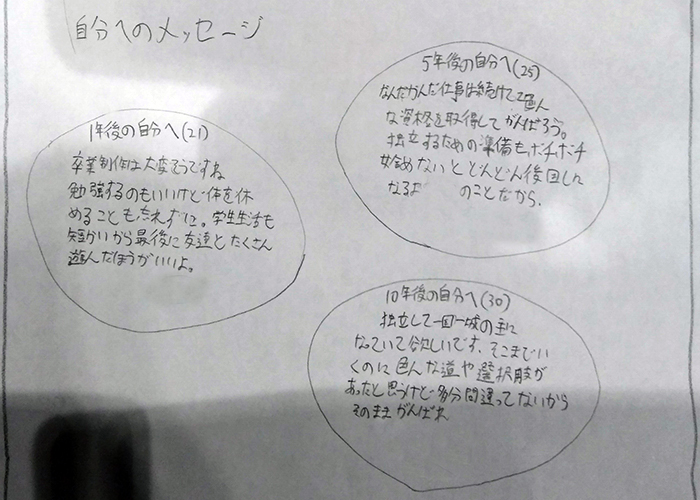 自分へのメッセージ
1年後の自分へ(21)
卒業制作は大変そうですね
勉強するのもいいけど体を休
めることも忘れずに。学生生活も
短かいから最後に友達とたくさん
遊んだほうがいいよ。
5年後の自分へ(25)
なんだかんだ仕事は続けてて色ん
な資格を取得してがんばろう。
独立するための準備もボチボチ
始めないとどんどん後回しに
なるよ のことだから。
10年後の自分へ(30)
独立して一国一城の主に
なっていて欲しいです。そこまでい
くのに色んな道や選択肢が
あったと思うけど多分間違ってないから
そのままがんばれ